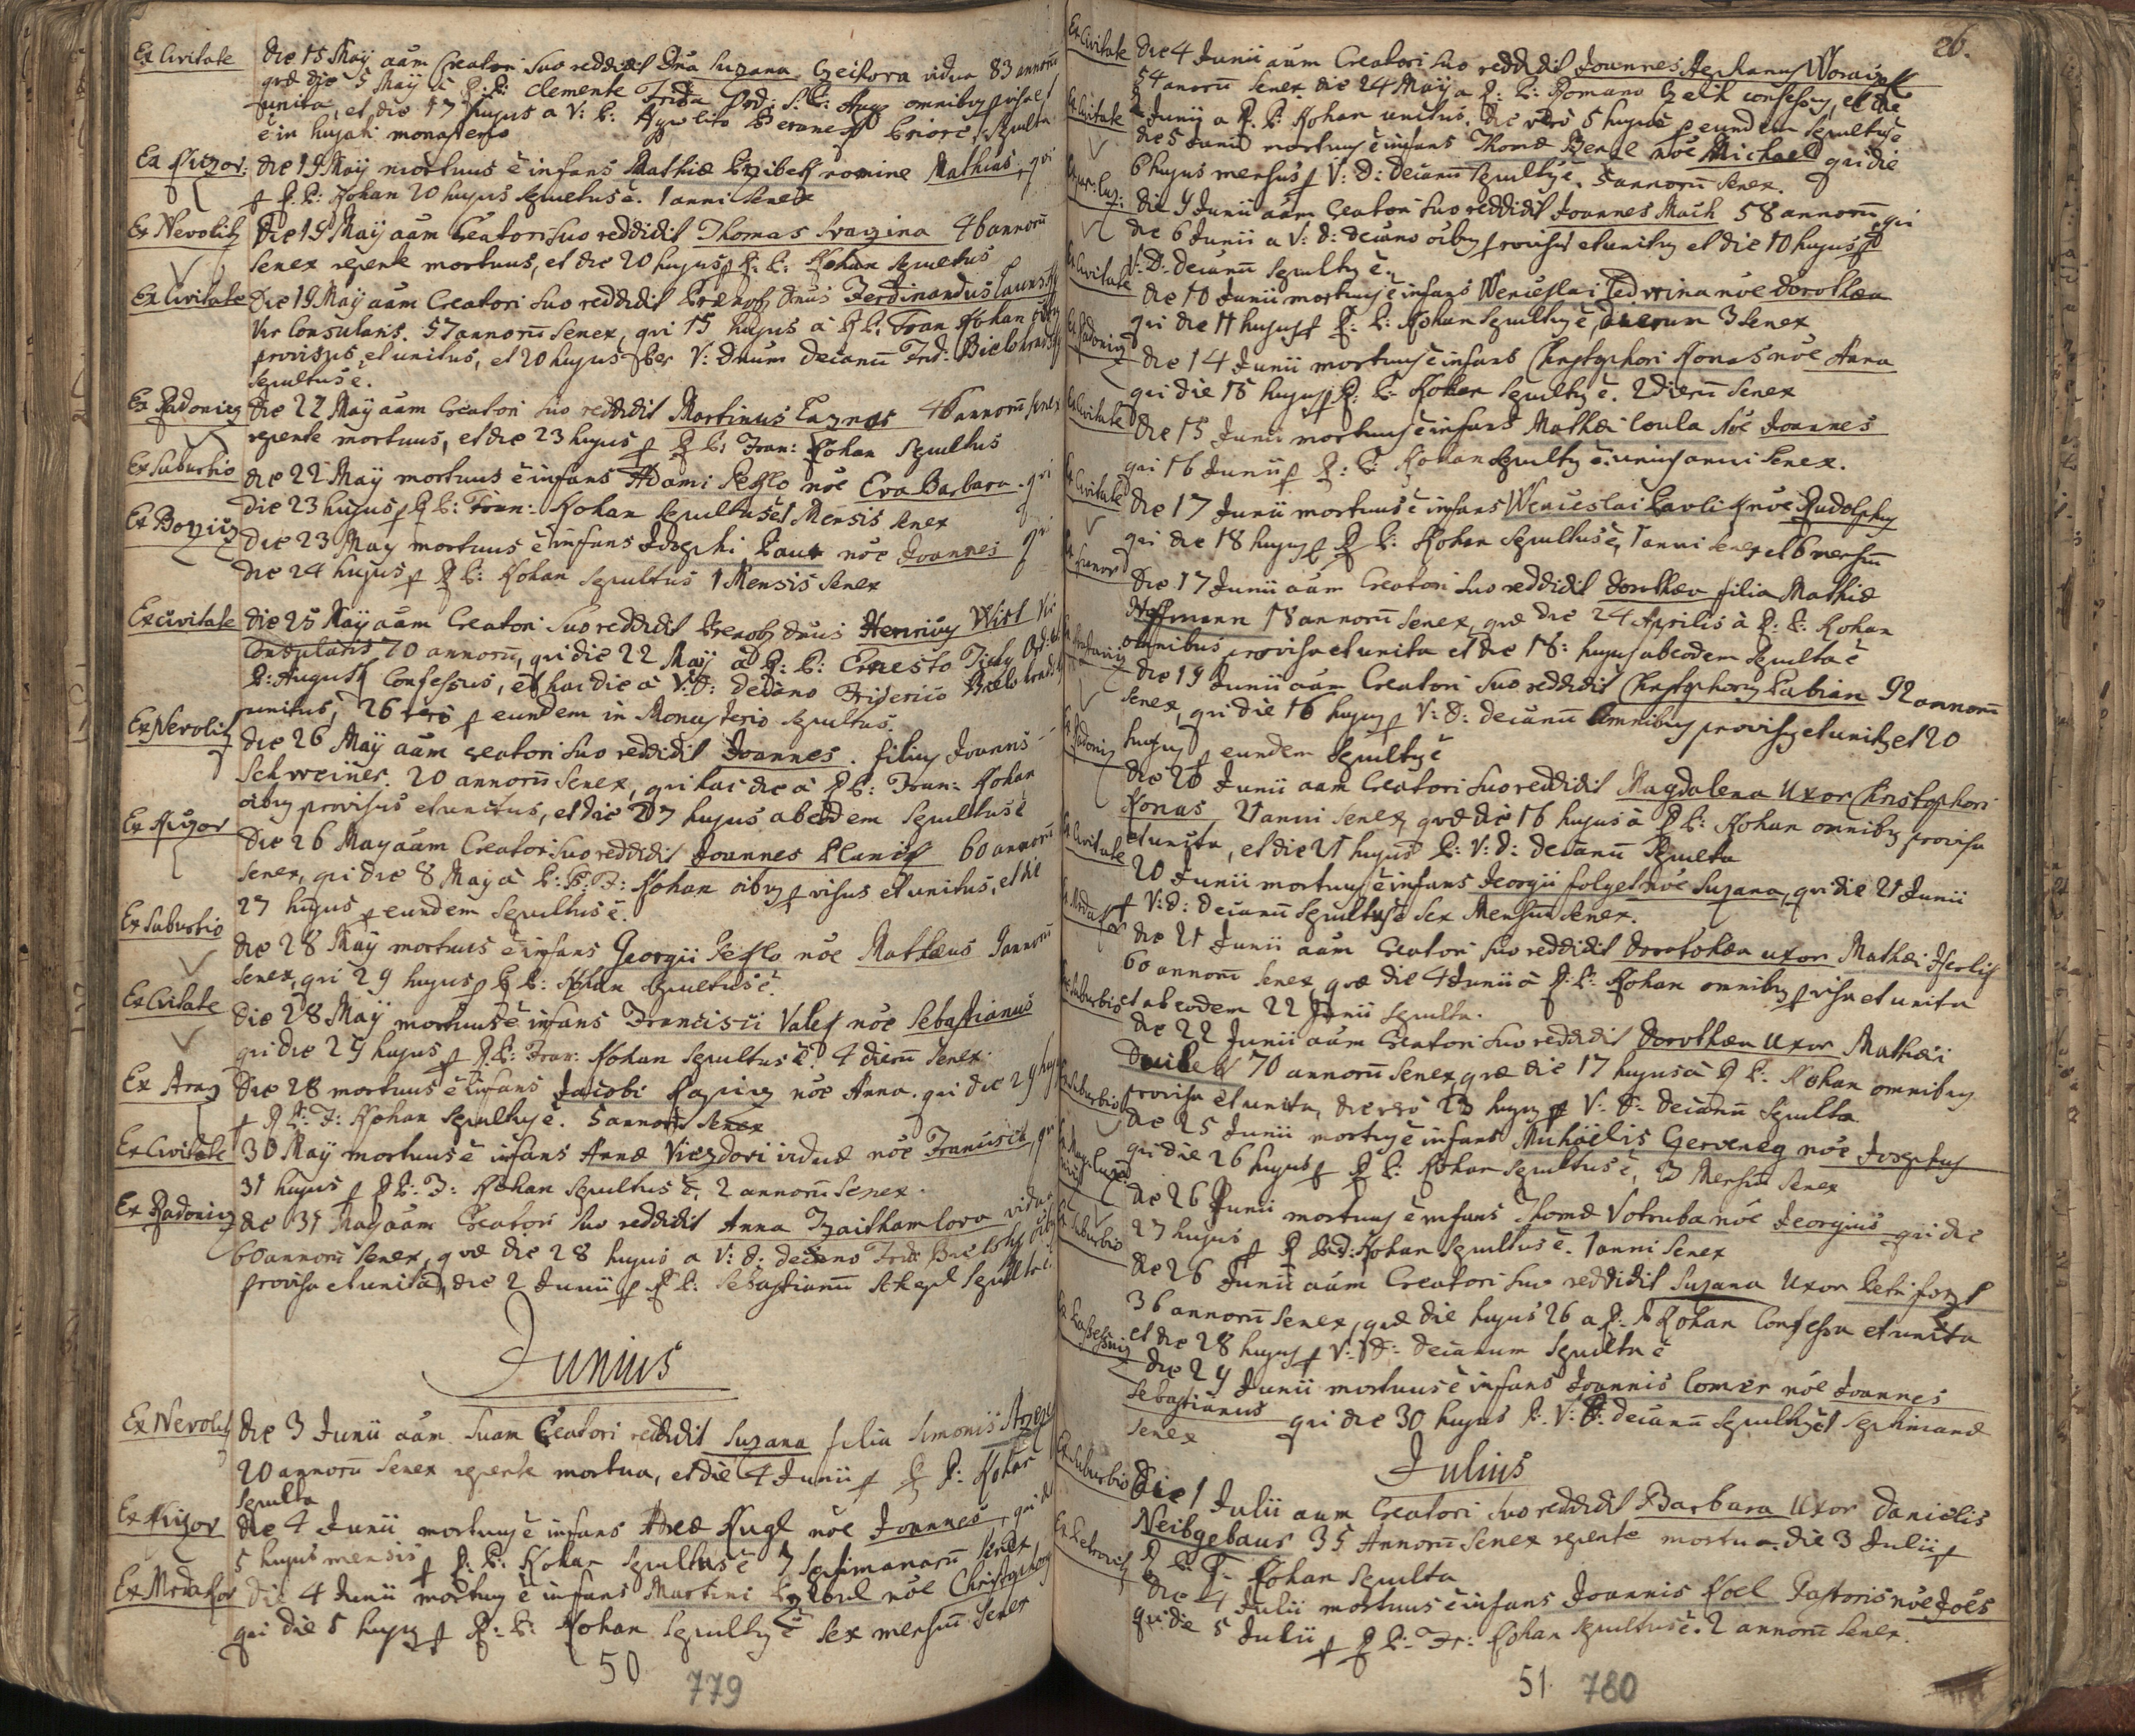 Ex Civitate die 15 Maÿ aām Creatori suo reddidit Dna Suzana Czeikova vidua 83 annorū
quæ die 5 Maÿ â P: P: Clemente Ord: S: P: Aug omnibus provisa et
unita, et die 17 hujus a V: P: Priore sepulta
ē in hujati monasterio
Ex Kuzor: die 19 Maÿ mortuus ē infans Mathiæ Przibek nomine Mathias, qui
p P: P: Kohan 20 hujus sepultus ē. 1 anni senex
Ex Nevolitz Die 19 Maÿ aām Creatori suo reddidit Thomas Svagina 46 annorū
senex repente mortuus, et die 20 hujus p P: P: Kohan sepultus
Ex Civitate Die 19 Maÿ aām Creatori suo reddidit Prænob Dnus Ferdinandus
Vir Consularis. 57 annorū senex, qui 15 hujus â P P: Fran Kohan oībus
provisus et unitus, et 20 hujus Per V: Dnum Decanū Frid: Bielohradsky
sepultus ē.
Ex Radonitz die 22 Maÿ aām Creatori suo reddidit Martinus Taznar 46 annorū senex
repente mortuus, et die 23 hujus p P P: Fran: Kohan sepultus
Ex Suburbio die 22 Maÿ mortuus ē infans Adami Peklo nōe Eva Barbara. qui
die 23 hujus p P P: Fran: Kohan sepultus ē 1 Mensis senex
Ex Bozitz die 23 May mortuus ē infans Josephi Paur nōe Joannes qui
die 24 hujus p P P: Kohan sepultus 1 Mensis senex
Ex civitate die 25 Maÿ aām Creatori suo reddidit Prænob Dnus Henricus Wirt Vir
Consularis 70 annorū, qui die 22 Maÿ â P: P: Ernesto Tichy Ord: S:
P: August Confessus, et hac die â V: D: Decano Friderico Bielohradsky
unitus, 26 vero p eundem in Monasterio sepultus.
Ex Nevolitz die 26 Maÿ aām Creatori suo reddidit Joannes. filius Joannis
Schweiner. 20 annorū senex, qui hac die â P P: Fran: Kohan
oībus provisus et unitus, et die 27 hujus ab eodem sepultus ē
Ex Kuzor Die 26 May aām Creatori suo reddidit Joannes Planck 60 annorū
senex, qui die 8 May â P: P: F: Kohan oībus pvisus et unitus, et die
27 hujus p eundem sepultus ē.
Ex Suburbio die 28 Maÿ mortuus ē infans Georgii Peklo nōe Mathæus annorū
senex, qui 29 hujus p P P: Kohan sepultus ē.
Ex Civitate Die 28 Maÿ mortuus ē infans Francisci Vales nōe Sebastianus
qui die 29 hujus p P: P: Fran: Kohan sepultus ē. 4 dierū senex.
Ex Die 28 mortuus ē infans Jacobi nōe Anna. qui die 29 hujus
p P P: F: Kohan sepultus ē. 5 annorū senex
Ex Civitate 30 Maÿ mortuus ē infans Annæ Viezdovi viduæ nōe Franciscus, qui
31 hujus p P P: F: Kohan sepultus ē, 2 annorū senex.
Ex Radonitz die 31 May aām Creatori suo reddidit Anna vidua
60 annorū senex, quæ die 28 hujus a V: D: decano Frid: oībus
provisa et unita, die 2 Junii p P P: Sebastianū sepulta ē.
Junius
Ex Nevolitz Die 3 Junii aām suam Creatori reddidit Suzana filia Simonis
20 annorū senex repente mortua, et die 4 Junii p P P: Kohan
sepulta
Ex Kuzor die 4 Junii mortuus ē infans Andreæ Kugl nōe Joannes, qui die
5 hujus mensis p P: P: Kohan sepultus ē 7 septimanarū senex
Ex Mrdakor Die 4 Junii mortuus ē infans Martini nōe Christophorus
qui die 5 hujus p P: P: Kohan sepultus ē sex mensiū senex
50 779
26.
Ex Civitate Die 4 Junii aām Creatori suo reddidit Joannes Stephanus
54 anorū senex die 24 Maÿ a P: P: Romano confessus, et die
Junii a P. P: Kohan unitus. die vero 5 hujus p eundem sepultus ē
Ex Civitate die 5 Junii mortuus ē infans Thomæ nōe Michael qui die
6 hujus mensis p V: D: decanū sepultus ē. 5 annorū senex.
die 9 Junii aām Creatori suo reddidit Joannes Mach 58 annorū qui
die 6 Junii a V: D: decano oībus provisus et unitus et die 10 hujus p
V: D: decanū sepultus ē.
Ex Civitate die 10 Junii mortuus ē infans Wenceslai Pedwina nōe Dorothæa
qui die 11 hujus p P: P: Kohan sepultus ē, dierum 3 senex
Ex Radonitz die 14 Junii mortuus ē infans Christophori Konas nōe Anna
qui die 15 hujus p P: P: Kohan sepultus ē. 2 dierū senex
Ex Civitate die 15 Junii mortuus ē infans Mathæi Coula nōe Joannes
qui 16 Junii p P: P: Kohan sepultus ē. unius anni senex.
Ex Civitate die 17 Junii mortuus ē infans Wenceslai Pavlik nōe Rudolphus
qui die 18 hujus p P P: Kohan sepultus ē, 1 anni senex et 6 mensiū
die 17 Junii aām Creatori suo reddidit Dorothæa filia Mathiæ
Hoffmann 18 annorū senex, quæ die 24 Aprilis â P: P: Kohan
omnibus provisa et unita et die 18: hujus ab eodem sepulta ē
die 19 Junii aām Creatori suo reddidit Christophorus Fabian 92 annorū
senex, qui die 16 hujus p V: D: decanū omnibus provisus et unitus et 20
hujus p eundem sepultus ē
Ex Radonitz die 20 Junii aām Creatori suo reddidit Magdalena Uxor Christophori
Konas 21 anni senex, quæ die 16 hujus â P P: Kohan omnibus provisa
et unita, et die 21 hujus P: V: D: decanū sepulta
Ex Civitate 20 Junii mortuus ē infans Georgii folget nōe Suzana, qui die 21 Junii
p V: D: decanū sepultus ē sex Mensiū senex.
die 21 Junii aām Creatori suo reddidit Dorotohæa uxor Mathæi
60 annorū senex, quæ die 4 Junii â P: P: Kohan omnibus pvisa et unita
et ab eodem 22 Junii sepulta.
Ex Suburbio die 22 Junii aām Creatori suo reddidit Dorothæa Uxor Mathæi
70 annorū senex, quæ die 17 hujus â P P: Kohan omnibus
provisa et unita, die vero 23 hujus p V: D: decanū sepulta.
Ex Suburbio die 25 Junii mortuus ē infans Michäelis Gerveneg nōe Josephus
qui die 26 hujus p P P: Kohan sepultus ē, 3 Mensiū senex
die 26 Junii mortuus ē infans Thomæ Votruba nōe Georgius qui die
27 hujus p P Kohan sepultus ē. 1 anni senex
Ex Suburbio die 26 Junii aām Creatori suo reddidit Suzana Uxor Petri
36 annorū senex, quæ die hujus 26 a P. P Kohan Confessa et unita
et die 28 hujus p V: D: decanum sepulta ē
die 29 Junii mortuus ē infans Joannis Comer nōe Joannes
Sebastianus qui die 30 hujus P. V: D: decanū sepultus ē 1 septimanæ
senex
Julius
Ex Suburbio Die 1 Julii aam Creatori suo reddidit Barbara Uxor Danielis
Neibgebaur 35 Annorū senex repente mortua. die 3 Julii p
P P: F: Kohan sepulta
Ex Petrovitz die 4 Julii mortuus ē infans Joannis Koel Pastoris nōe Joēs
qui die 5 Julii p P P: Fr: Kohan sepultus ē. 2 annorū senex.
51. 780